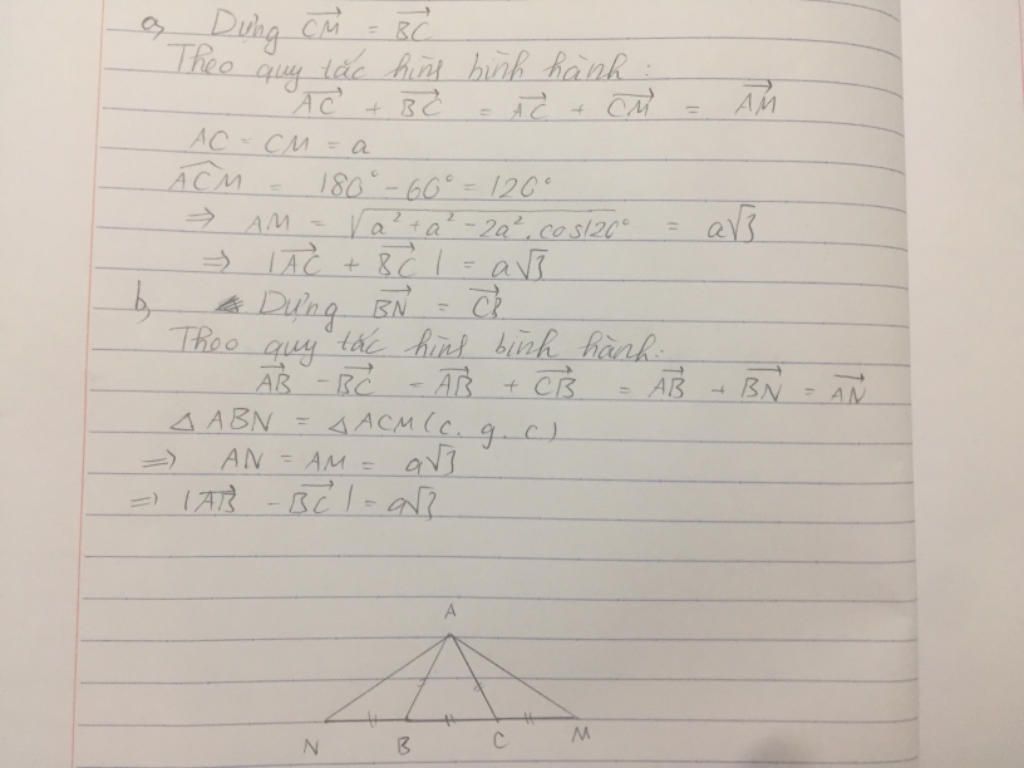 a, Dựng $\overrightarrow{CM} = \overrightarrow{BC}$
Theo quy tắc hình bình hành:
$\overrightarrow{AC} + \overrightarrow{BC} = \overrightarrow{AC} + \overrightarrow{CM} = \overrightarrow{AM}$
AC = CM = a
$\widehat{ACM} = 180° - 60° = 120°$
$\Rightarrow AM = \sqrt{a^2 + a^2 - 2a^2.cos120°} = a\sqrt{3}$
$\Rightarrow |\overrightarrow{AC} + \overrightarrow{BC}| = a\sqrt{3}$
b, Dựng $\overrightarrow{BN} = \overrightarrow{CB}$
Theo quy tắc hình bình hành:
$\overrightarrow{AB} - \overrightarrow{BC} = \overrightarrow{AB} + \overrightarrow{CB} = \overrightarrow{AB} + \overrightarrow{BN} = \overrightarrow{AN}$
△ABN = △ACM (c.g.c)
$\Rightarrow AN = AM = a\sqrt{3}$
$\Rightarrow |\overrightarrow{AB} - \overrightarrow{BC}| = a\sqrt{3}$
A
N B C M